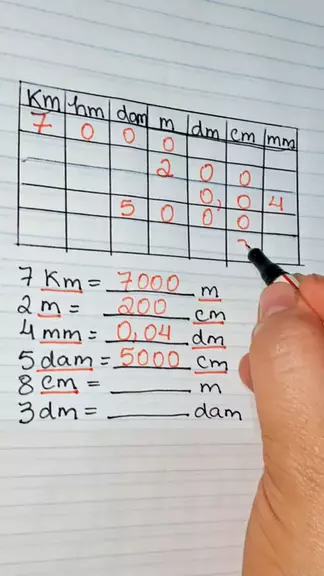 Km hm dam m dm cm mm
7 0 0 0
2 0 0
0, 0 4
5 0 0 0
7 Km = 7000 m
2 m = 200 cm
4 mm = 0,04 dm
5 dam = 5000 cm
8 cm = ______ m
3 dm = ______ dam